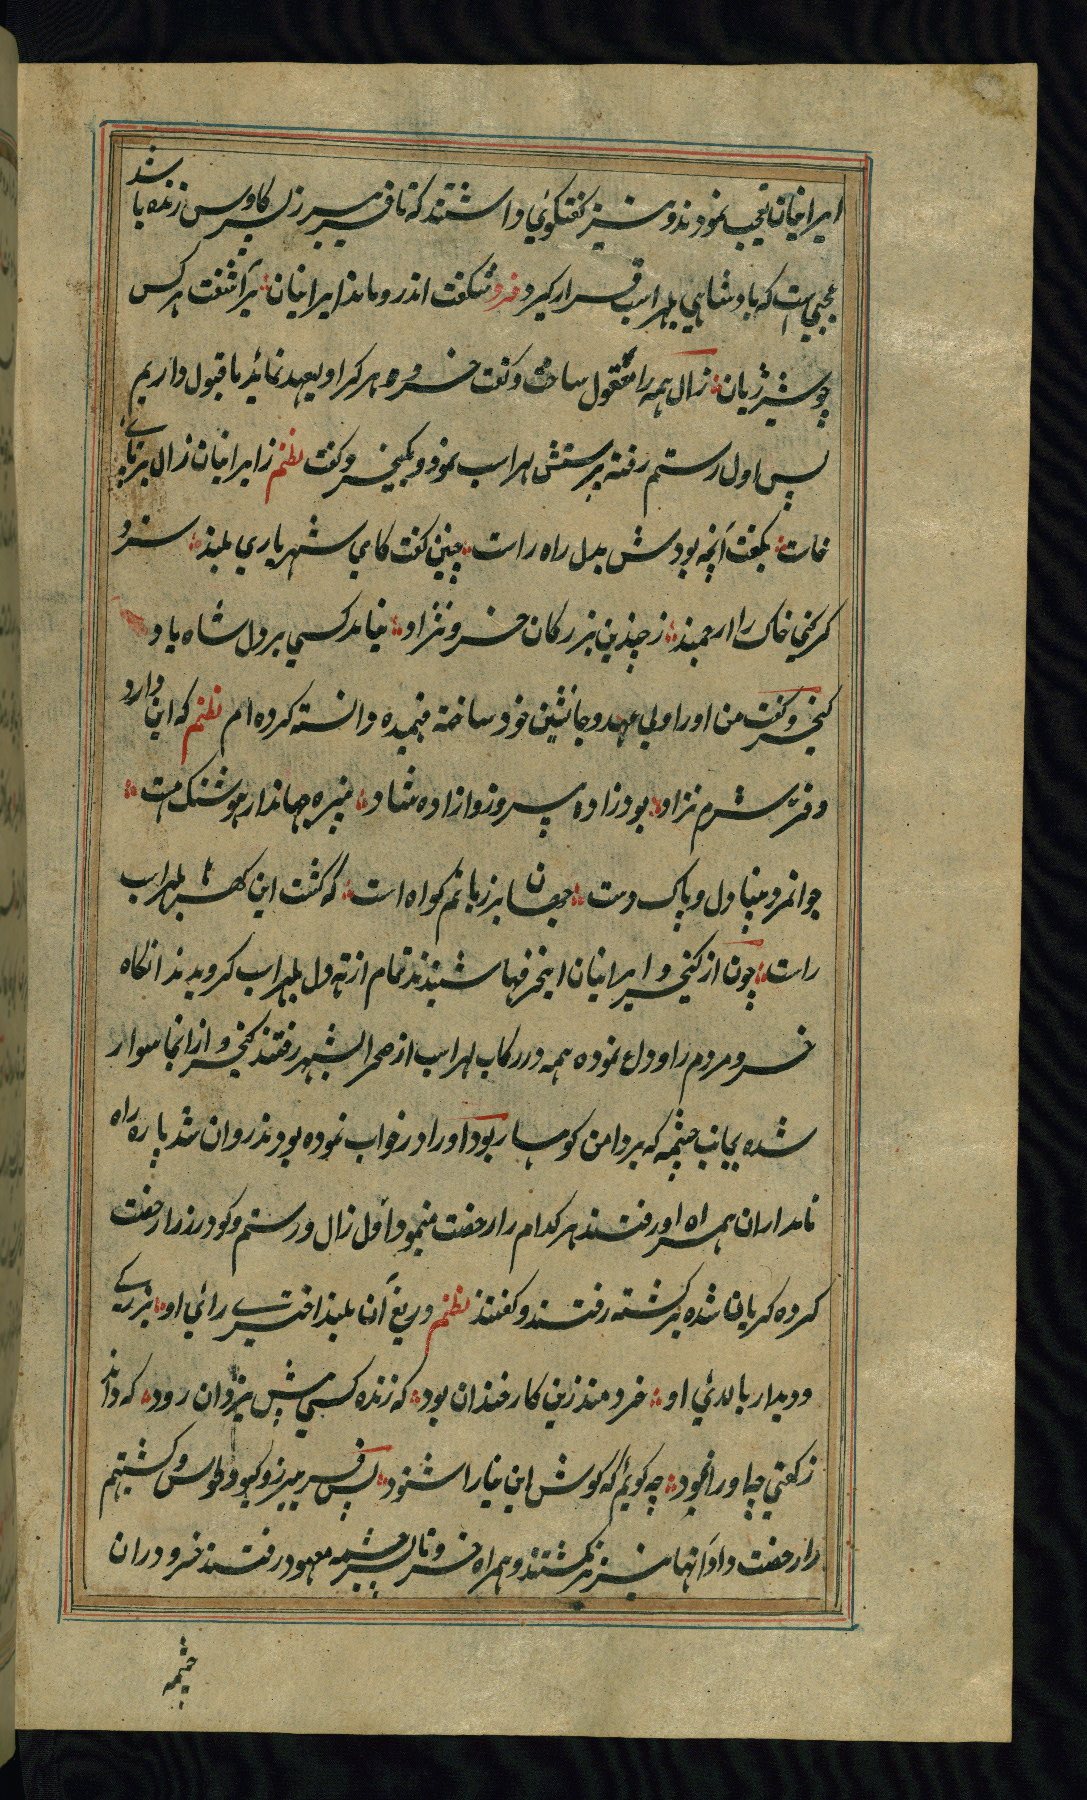 ایرانیان تعجب نمودند و نیز گفتگوئی داشتند که تا فریبرز پسر کاوس زنده باشد
عجبی است که پادشاهی بلهراسب قرار گیرد فرد شگفت اندرو ماند ایرانیان برآشفت هر کس
چو شیر ژیان زال همه را معقول ساخت و گفت خسرو هر کرا ولیعهد نماید ما قبول داریم
پس اول رستم رفته پرستش لهراسب نمود و بکیخسرو گفت نظم ز ایرانیان زال بر پای
خاست بگفت آنچه بودش بدل راه راست چنین گفت کای شهریاری بلند سزد
گر کنی خاک را ارجمند ز چندین بزرگان خسرو نژاد نیاید کسی بر دل شاه یاد
کیخسرو گفت من او را ولی عهد و جانشین خود ساخته فهمیده دانسته کرده ام نظم که این دارد
و فر شرم نژاد بود زاده پیروز و آزاده شاد نبیره جهاندار هوشنگ هست
جوانمرد بینا دل و پاک دست جهان بر زبانم گواه است که گشت این کهر بلهراسب
راست چون از کیخسرو ایرانیان این حرفها شنیدند تمام از ته دل بلهراسب گرویدند آنگاه
خسرو مردم را وداع نموده همه در رکاب لهراسب از صحرا بشهر رفتند کیخسرو از انجا سوار
شده بجانب چشمه که بر دامن کوهسار بود او را در خواب نموده بودند روان شد پاره راه
نامداران همراه او رفتند هر کدام را رخصت مینمود اول زال و رستم و گودرز را رخصت
کرده گریان شده برگشته رفتند و گفتند نظم دریغ آن بلند اختر رائی او بزرگی
و دیدار بالائی او خردمند زین کار خندان بود که زنده کسی پیش یزدان رود که داند
ز گیتی چه او را نمود چه گویم که گوش این نیارا شنود پس فریبرز و گیو و طوس و گستهم
را رخصت داد آنها نیز نگشتند و همراه خسرو تا لب چشمه معهود رفتند خسرو دران
چشمه